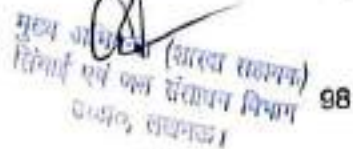 मुख्य अभियन्ता (शारदा सहायक)
सिंचाई एवं जल संसाधन विभाग
उ०प्र०, लखनऊ।
98